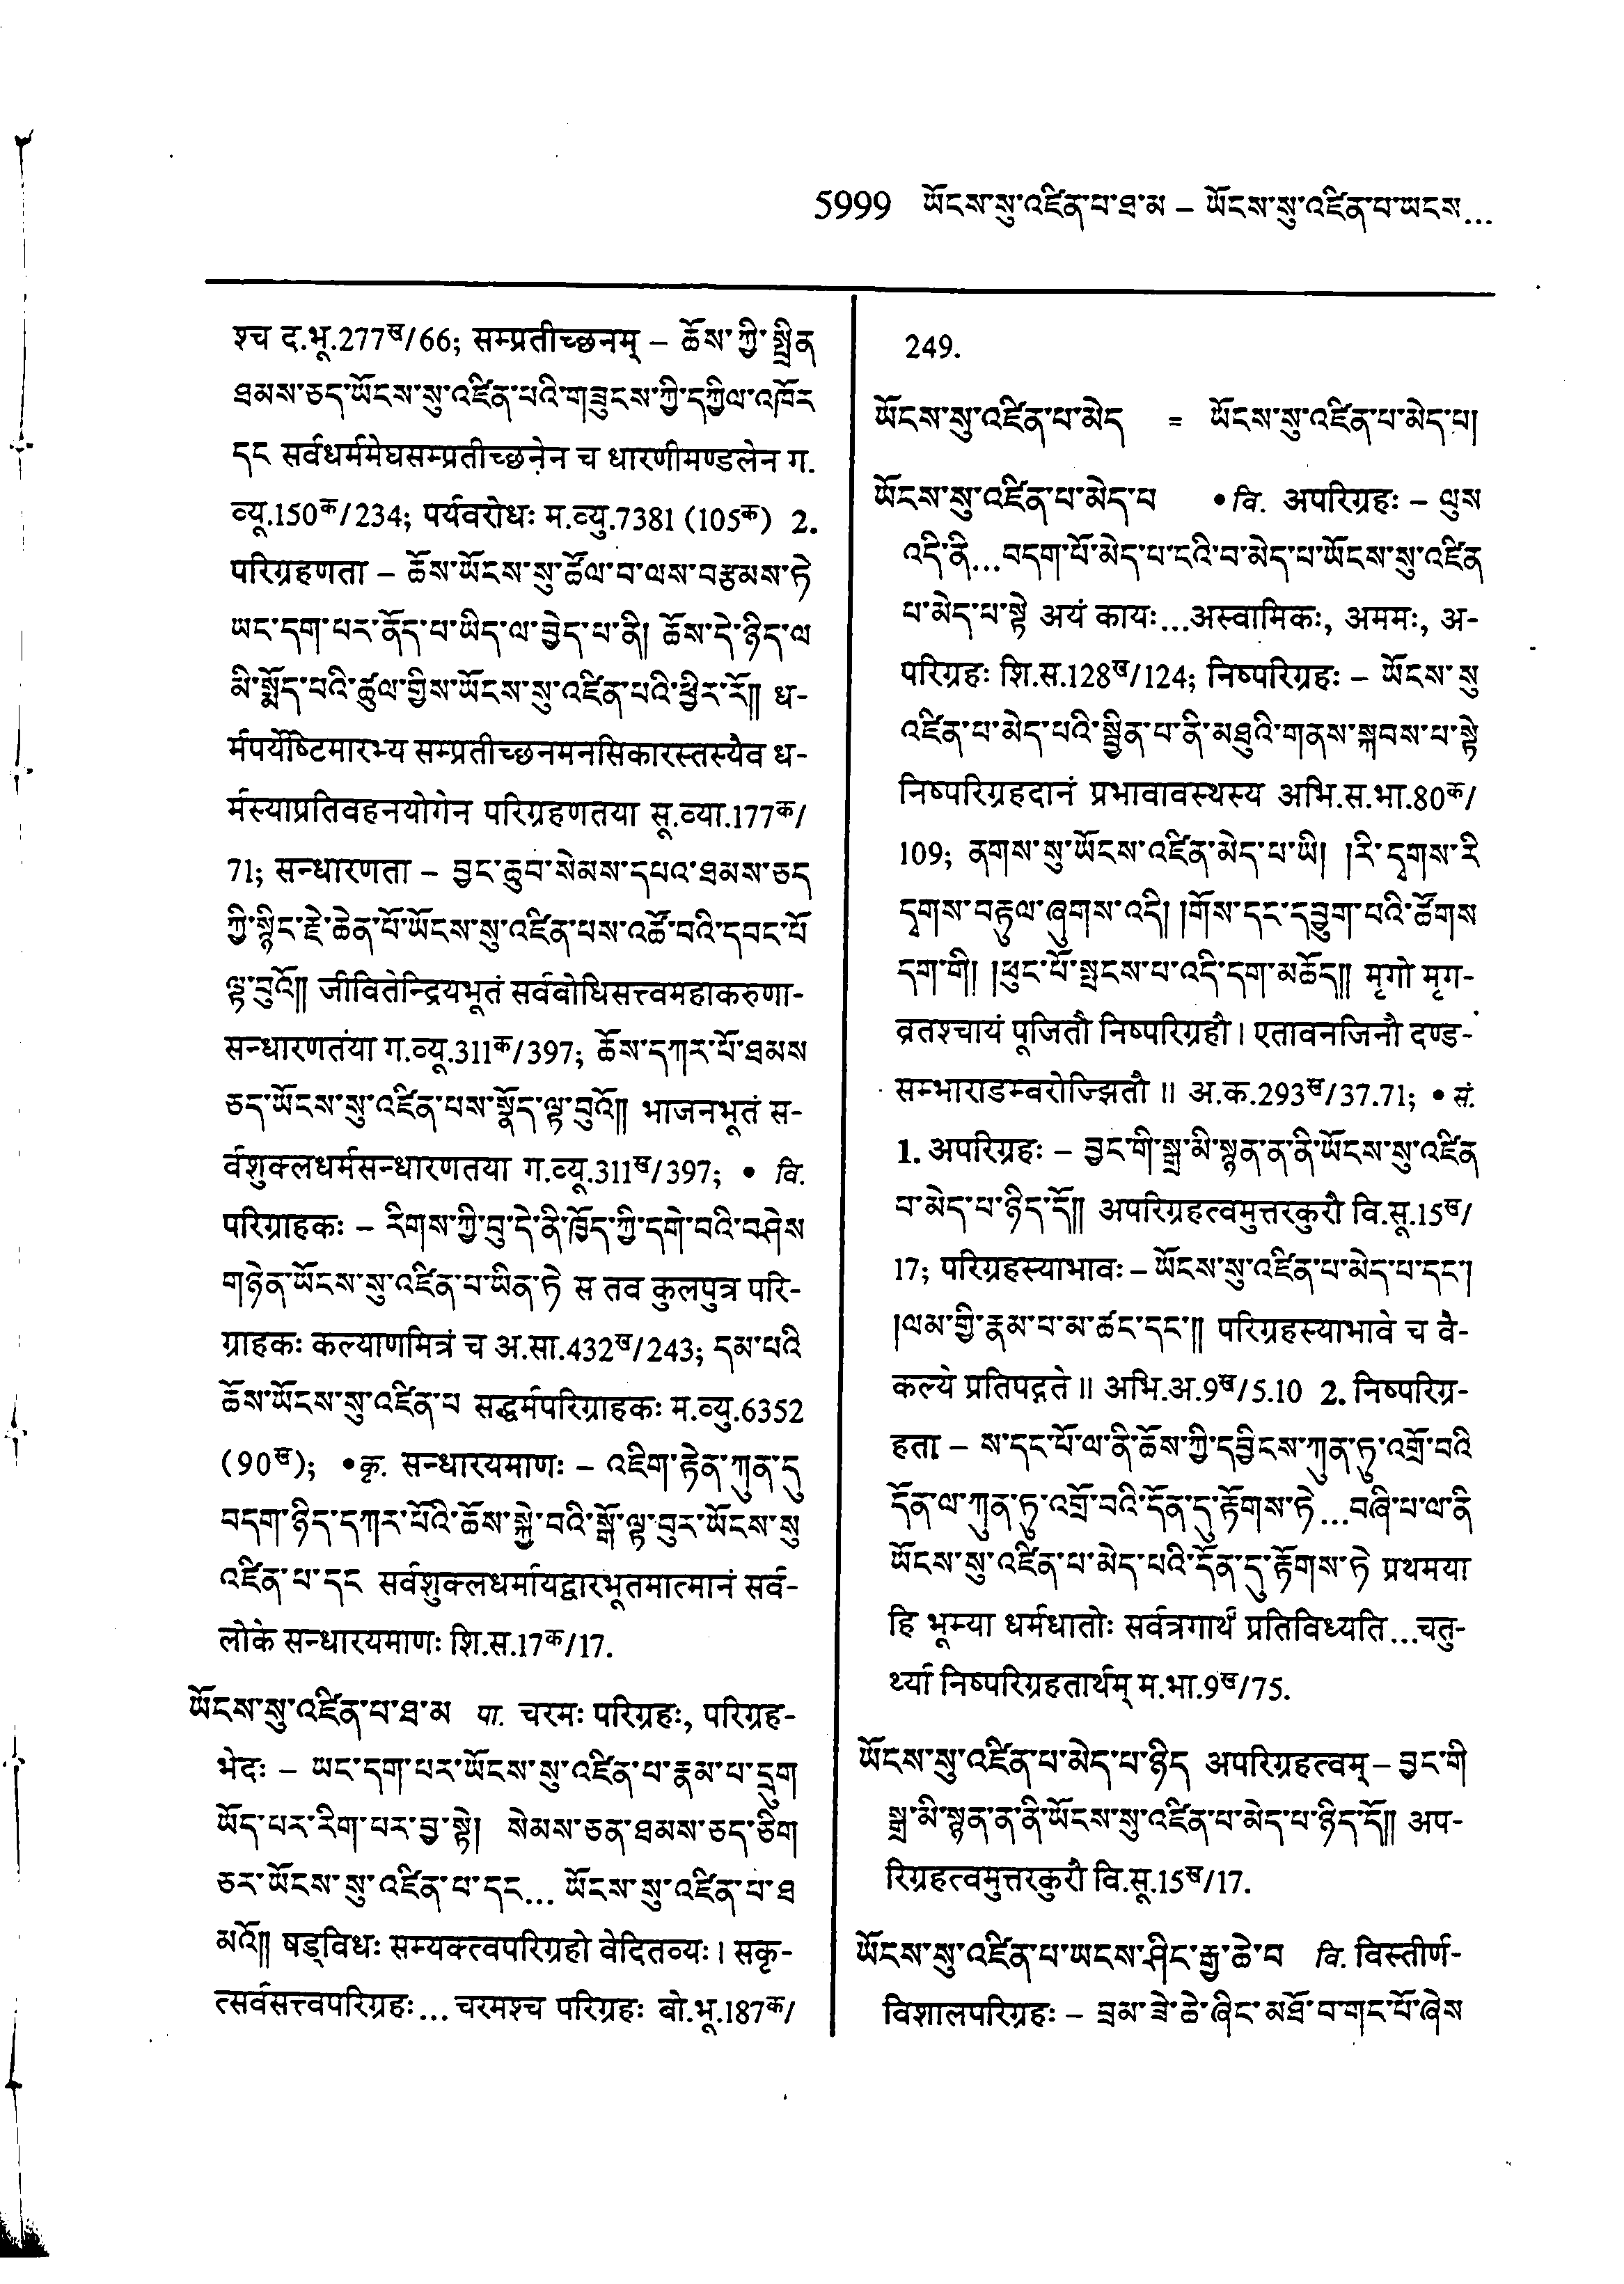 5999 ཡོངས་སུ་འཛིན་པ་ཐ་མ – ཡོངས་སུ་འཛིན་པ་ཡངས...
श्च द.भू.277ख/66; सम्प्रतीच्छनम् – ཆོས་ཀྱི་སྤྲིན
ཐམས་ཅད་ཡོངས་སུ་འཛིན་པའི་གཟུངས་ཀྱི་དཀྱིལ་འཁོར
དང सर्वधर्ममेघसम्प्रतीच्छनेन च धारणीमण्डलेन ग.
व्यू.150क/234; पर्यवरोधः म.व्यु.7381 (105क) 2.
परिग्रहणता – ཆོས་ཡོངས་སུ་ཚོལ་བ་ལས་བརྩམས་ཏེ
ཡང་དག་པར་ནོད་པ་ཡིད་ལ་བྱེད་པ་ནི། ཆོས་དེ་ཉིད་ལ
མི་སྨོད་པའི་ཚུལ་གྱིས་ཡོངས་སུ་འཛིན་པའི་ཕྱིར་རོ༎ ध-
र्मपर्येष्टिमारभ्य सम्प्रतीच्छनमनसिकारस्तस्यैव ध-
र्मस्याप्रतिवहनयोगेन परिग्रहणतया सू.व्या.177क/
71; सन्धारणता – བྱང་ཆུབ་སེམས་དཔའ་ཐམས་ཅད
ཀྱི་སྙིང་རྗེ་ཆེན་པོ་ཡོངས་སུ་འཛིན་པས་འཚོ་བའི་དབང་པོ
ལྟ་བུའོ༎ जीवितेन्द्रियभूतं सर्वबोधिसत्त्वमहाकरुणा-
सन्धारणतया ग.व्यू.311क/397; ཆོས་དཀར་པོ་ཐམས
ཅད་ཡོངས་སུ་འཛིན་པས་སྣོད་ལྟ་བུའོ༎ भाजनभूतं स-
र्वशुक्लधर्मसन्धारणतया ग.व्यू.311ख/397; • वि.
परिग्राहकः – རིགས་ཀྱི་བུ་དེ་ནི་ཁྱོད་ཀྱི་དགེ་བའི་བཤེས
གཉེན་ཡོངས་སུ་འཛིན་པ་ཡིན་ཏེ स तव कुलपुत्र परि-
ग्राहकः कल्याणमित्रं च अ.सा.432ख/243; དམ་པའི
ཆོས་ཡོངས་སུ་འཛིན་པ सद्धर्मपरिग्राहकः म.व्यु.6352
(90ख); • कृ. सन्धारयमाणः – འཇིག་རྟེན་ཀུན་ དུ
བདག་ཉིད་དཀར་པོའི་ཆོས་སྐྱེ་བའི་སྒོ་ལྟ་བུར་ཡོངས་སུ
འཛིན་པ་དང सर्वशुक्लधर्मायद्वारभूतमात्मानं सर्व-
लोके सन्धारयमाणः शि.स.17क/17.
ཡོངས་སུ་འཛིན་པ་ཐ་མ पा. चरमः परिग्रहः, परिग्रह-
भेदः – ཡང་དག་པར་ཡོངས་སུ་འཛིན་པ་རྣམ་པ་དྲུག
ཡོད་པར་རིག་པར་བྱ་སྟེ། སེམས་ཅན་ཐམས་ཅད་ཅིག
ཅར་ཡོངས་སུ་འཛིན་པ་དང... ཡོངས་སུ་འཛིན་པ་ཐ
མའོ༎ षड्विधः सम्यक्त्वपरिग्रहो वेदितव्यः। सकृ-
त्सर्वसत्त्वपरिग्रहः... चरमश्च परिग्रहः बो.भू.187क/
249.
ཡོངས་སུ་འཛིན་པ་མེད = ཡོངས་སུ་འཛིན་པ་མེད་པ།
ཡོངས་སུ་འཛིན་པ་མེད་པ • वि. अपरिग्रहः – ལུས
འདི་ནི...བདག་པོ་མེད་པ་ངའི་བ་མེད་པ་ཡོངས་སུ་འཛིན
པ་མེད་པ་སྟེ अयं कायः...अस्वामिकः, अममः, अ-
परिग्रहः शि.स.128ख/124; निष्परिग्रहः – ཡོངས་སུ
འཛིན་པ་མེད་པའི་སྦྱིན་པ་ནི་མཐུའི་གནས་སྐབས་པ་སྟེ
निष्परिग्रहदानं प्रभावावस्थस्य अभि.स.भा.80क/
109; ནགས་སུ་ཡོངས་འཛིན་མེད་པ་ཡི། །རི་དྭགས་རི
དྭགས་བརྟུལ་ཞུགས་འདི། །གོས་དང་དབྱུག་པའི་ཚོགས
དག་གི། །ཕུང་པོ་སྤངས་པ་འདི་དག་མཆོད༎ मृगो मृग-
व्रतश्चायं पूजितौ निष्परिग्रहौ। एतावनजिनौ दण्ड-
सम्भाराडम्बरोज्झितौ॥ अ.क.293ख/37.71; • सं.
1. अपरिग्रहः – བྱང་གི་སྒྲ་མི་སྙན་ན་ནི་ཡོངས་སུ་འཛིན
པ་མེད་པ་ཉིད་དོ༎ अपरिग्रहत्वमुत्तरकुरौ वि.सू.15ख/
17; परिग्रहस्याभावः – ཡོངས་སུ་འཛིན་པ་མེད་པ་དང་།
།ལམ་གྱི་རྣམ་པ་མ་ཚང་དང་༎ परिग्रहस्याभावे च वै-
कल्ये प्रतिपद्गते॥ अभि.अ.9ख/5.10 2. निष्परिग्र-
हता – ས་དང་པོ་ལ་ནི་ཆོས་ཀྱི་དབྱིངས་ཀུན་ཏུ་འགྲོ་བའི
དོན་ལ་ཀུན་ཏུ་འགྲོ་བའི་དོན་དུ་རྟོགས་ཏེ...བཞི་པ་ལ་ནི
ཡོངས་སུ་འཛིན་པ་མེད་པའི་དོན་དུ་རྟོགས་ཏེ प्रथमया
हि भूम्या धर्मधातोः सर्वत्रगार्थं प्रतिविध्यति...चतु-
र्थ्या निष्परिग्रहतार्थम् म.भा.9ख/75.
ཡོངས་སུ་འཛིན་པ་མེད་པ་ཉིད अपरिग्रहत्वम् – བྱང་གི
སྒྲ་མི་སྙན་ན་ནི་ཡོངས་སུ་འཛིན་པ་མེད་པ་ཉིད་དོ༎ अप-
रिग्रहत्वमुत्तरकुरौ वि.सू.15ख/17.
ཡོངས་སུ་འཛིན་པ་ཡངས་ཤིང་རྒྱ་ཆེ་བ वि. विस्तीर्ण-
विशालपरिग्रहः – བྲམ་ཟེ་ཆེ་ཞིང་མཐོ་བ་གང་པོ་ཞེས